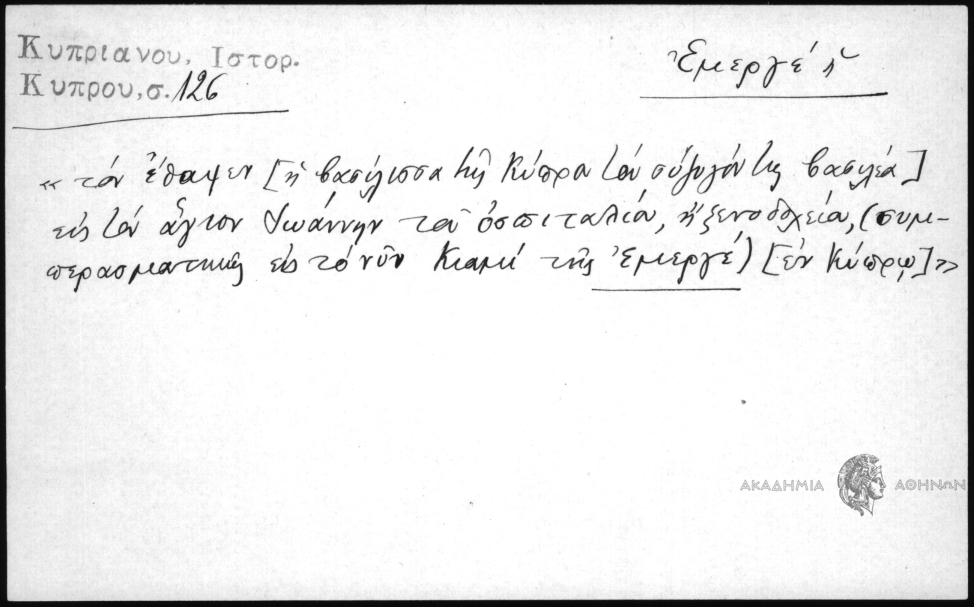 Κυπριανου, Ιστορ.
Κυπρου, σ. 126
Ἐμεργέ ἡ
« τὸν ἔθαψεν [ἡ βασίλισσα τῆς Κύπρου τὸν σύζυγόν της βασιλέα]
εἰς τὸν ἅγιον Ἰωάννην τοῦ ὁσπιταλίου, ἢ ξενοδοχείου, (συμ-
περασματικῶς εἰς τὸ νῦν Κιαμί τῆς Ἐμεργέ) [ἐν Κύπρῳ] »
ΑΚΑΔΗΜΙΑ ΑΘΗΝΩΝ